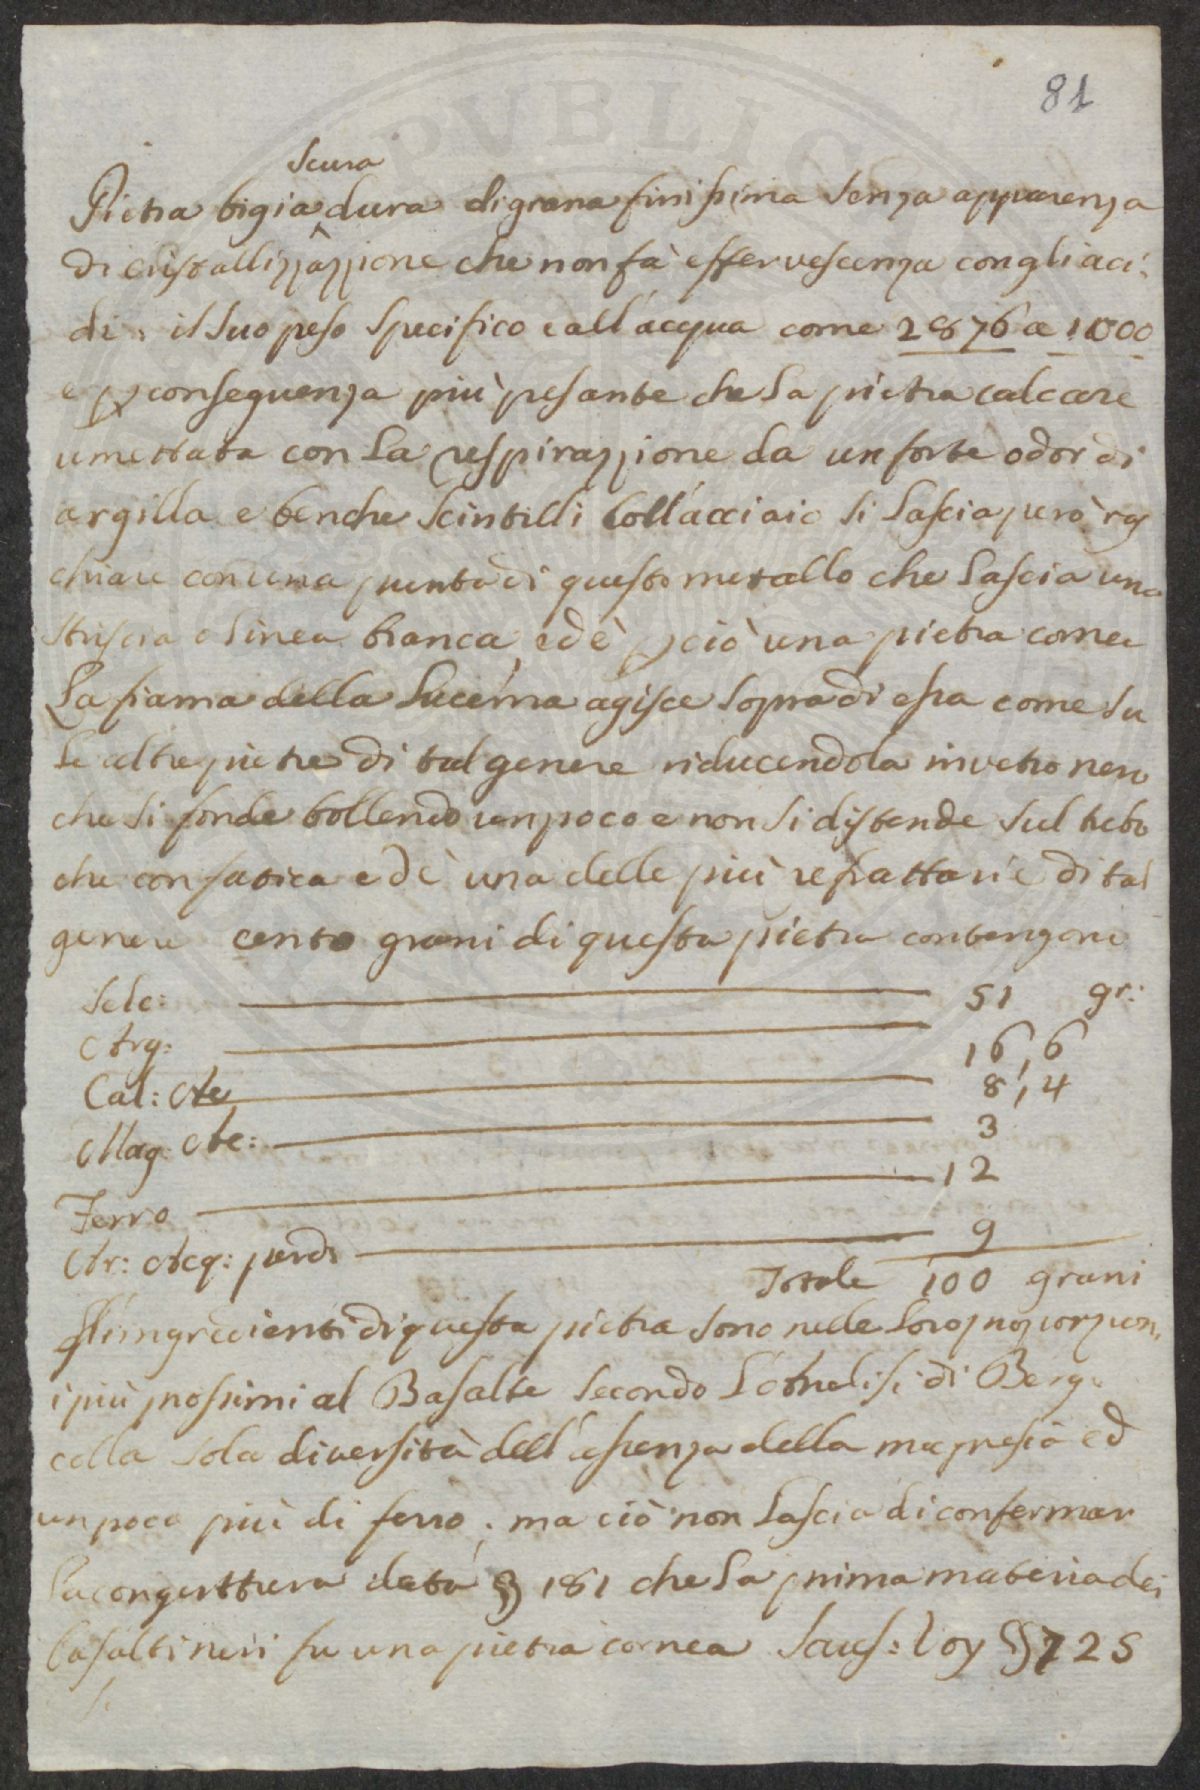 81
scura
Pietra bigia dura di grana finissima senza apparenza
di cristallizzazzione che non fà effervescenza con gli aci-
di: il suo peso specifico e all'acqua come 2876 a 1000
e p conseguenza più pesante che la pietra calcare
umettata con la respirazzione da un forte odor di
argilla e benche scintilli coll'acciaio si lascia però ras
chiare con una punta di questo metallo che lascia una
striscia o linea bianca, ed è p ciò una pietra cornea
La fiama della lucerna agisce sopra di essa come su
le altre pietre di tal genere riducendola in vetro nero
che si fonde bollendo un poco e non si distende sul tubo
che con fatica ed è una delle più refrattarie di tal
genere cento grani di questa pietra contengono
Sele: 51 gr:
Arg: 16,6
Cal: Ae 8,4
Mag: Ae: 3
Ferro 12
Ar: Acq: perdi 9
Totale 100 grani
Gl'ingredienti di questa pietra sono nelle loro proporzioni
i più prossimi al Basalte secondo l'Analisi di Berg:
colla sola diversità dell'assenza della magnesia ed
un poco più di ferro; ma ciò non lascia di confermar
la congerttura data § 181 che la prima materia dei
basalti neri fu una pietra cornea Saus: Voy § 725